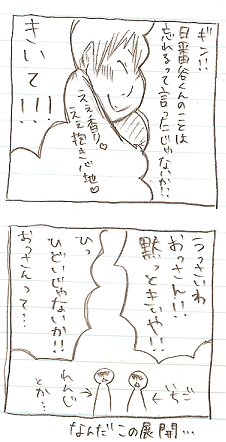 ギン!!
日番谷くんのことは
忘れるって言ったじゃないか!!
ええ香り♡
ええ抱き心地♡
きいて!!!
うっさいわ
おっさん!!
黙っときいや!!
ひっ
ひどいじゃないか!!
おっさんって…
いちご
れんじ
とか…
なんだこの展開…